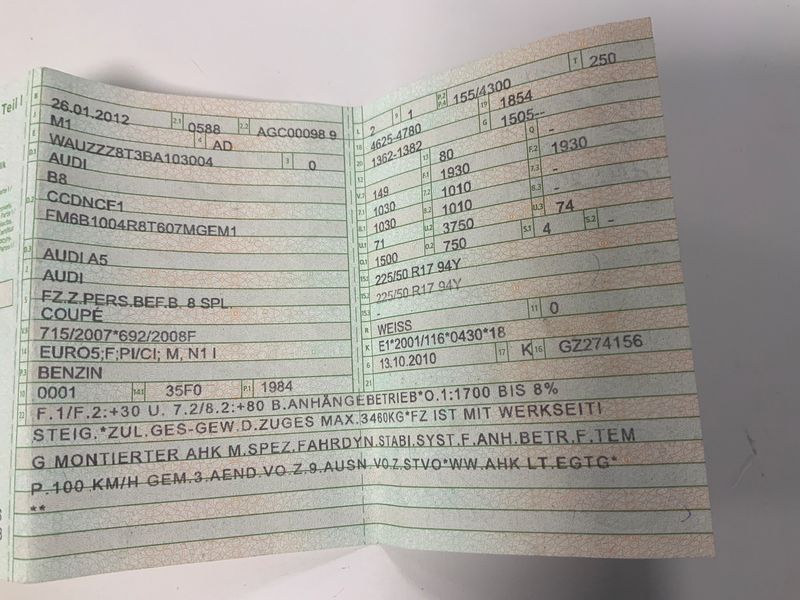 Teil I
B 26.01.2012 2.1 0588 2.2 AGC00098 9
J M1 4 AD
E WAUZZZ8T3BA103004 3 0
D.1 AUDI
B8
D.2 CCDNCF1
FM6B1004R8T607MGEM1
D.3 AUDI A5
2 AUDI
5 FZ.Z.PERS.BEF.B. 8 SPL.
COUPÉ
V.9 715/2007*692/2008F
14 EURO5;F;PI/CI; M, N1 I
P.3 BENZIN
10 0001 14.1 35F0 P.1 1984
L 2 9 1 P.2 P.4 155/4300 T 250
18 4625-4780 19 1854
20 1362-1382 G 1505--
12 - 13 80 Q -
V.7 149 F.1 1930 F.2 1930
7.1 1030 7.2 1010 7.3 -
8.1 1030 8.2 1010 8.3 -
U.1 71 U.2 3750 U.3 74
O.1 1500 O.2 750 S.1 4 S.2 -
15.1 225/50 R17 94Y
15.2 225/50 R17 94Y
15.3 -
R WEISS 11 0
K E1*2001/116*0430*18
6 13.10.2010 17 K 16 GZ274156
21
22 F.1/F.2:+30 U. 7.2/8.2:+80 B.ANHÄNGEBETRIEB*O.1:1700 BIS 8%
STEIG.*ZUL.GES-GEW.D.ZUGES MAX.3460KG*FZ IST MIT WERKSEITI
G MONTIERTER AHK M.SPEZ.FAHRDYN.STABI.SYST.F.ANH.BETR.F.TEM
P.100 KM/H GEM.3.AEND.VO.Z.9.AUSN VO.Z.STVO*WW.AHK LT.EGTG*
**